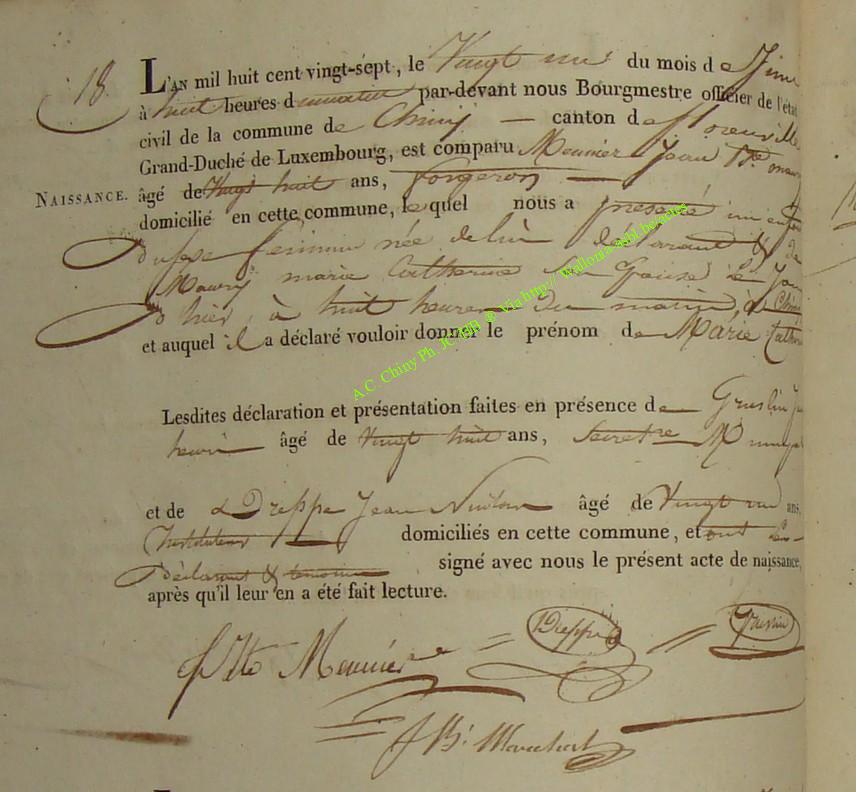 18.
L'AN mil huit cent vingt-sept, le Vingt un du mois de Juin
à huit heures du par-devant nous Bourgmestre officier de l'état
civil de la commune de Chiny — canton de florenville
Grand-Duché de Luxembourg, est comparu Meunier Jean Bte
NAISSANCE.
âgé de Vingt huit ans, forgeron —
domicilié en cette commune, lequel nous a presenté un enfant
du sexe feminin née de lui déclarant & de
marie Catherine Son Epouse Le Jour
d'hier, à huit heures du matin, à Chiny
et auquel il a déclaré vouloir donner le prénom de Marie Cathe
Lesdites déclaration et présentation faites en présence de
henri — âgé de Vingt huit ans, Secretre
et de Dreppe Jean âgé de Vingt ans,
Instituteur — domiciliés en cette commune, et ont les
Déclarant & temoins signé avec nous le présent acte de naissance,
après qu'il leur en a été fait lecture.
Meunier = Dreppe =
J Bt Marechal
A.C. Chiny Ph. JC HB ® Via http:// Wallonia-asbl.be/actes